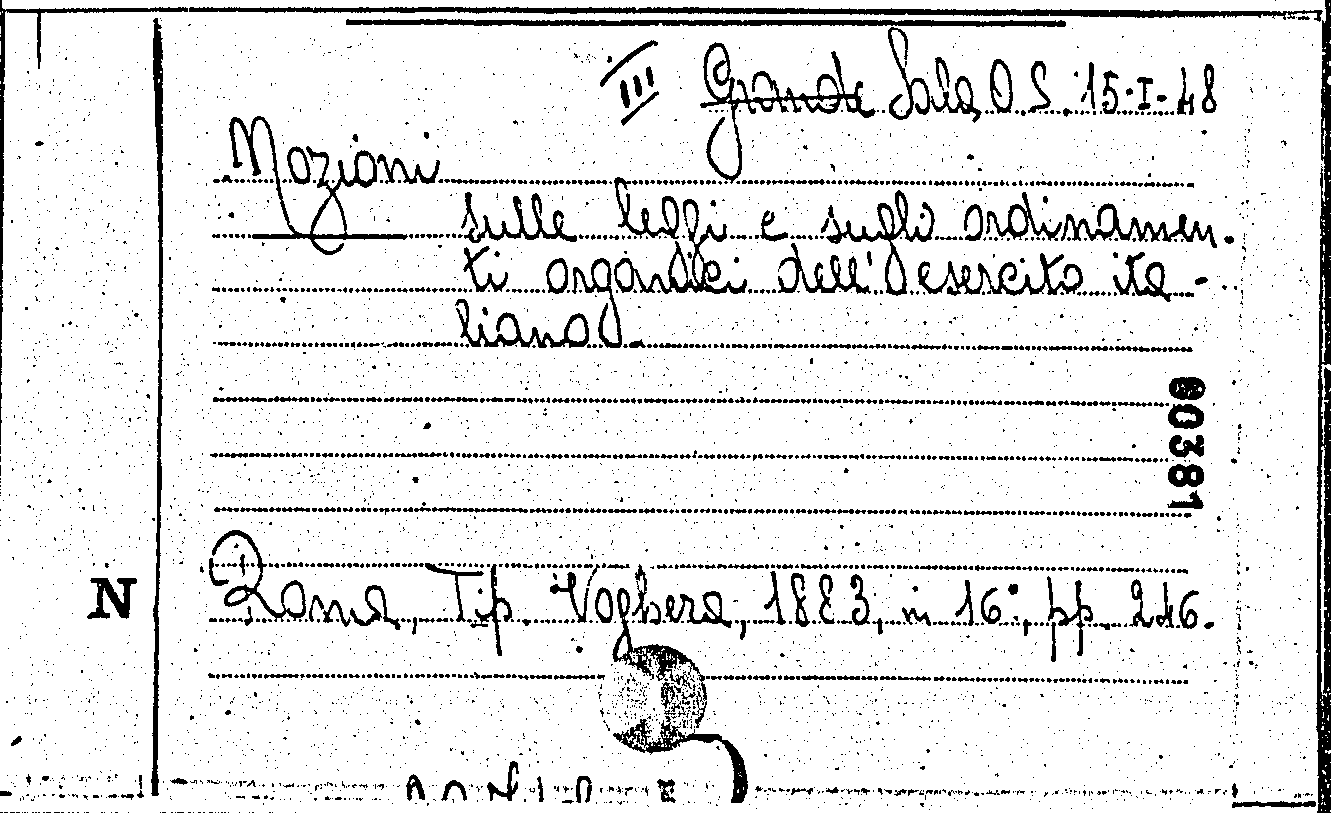 III Grande Sala, O S. 15-I-48
Nozioni
sulle leggi e sugli ordinamen-
ti organici dell'esercito ita-
liano.
00381
N Roma, Tip. Voghera, 1883, in 16°, pp. 246.